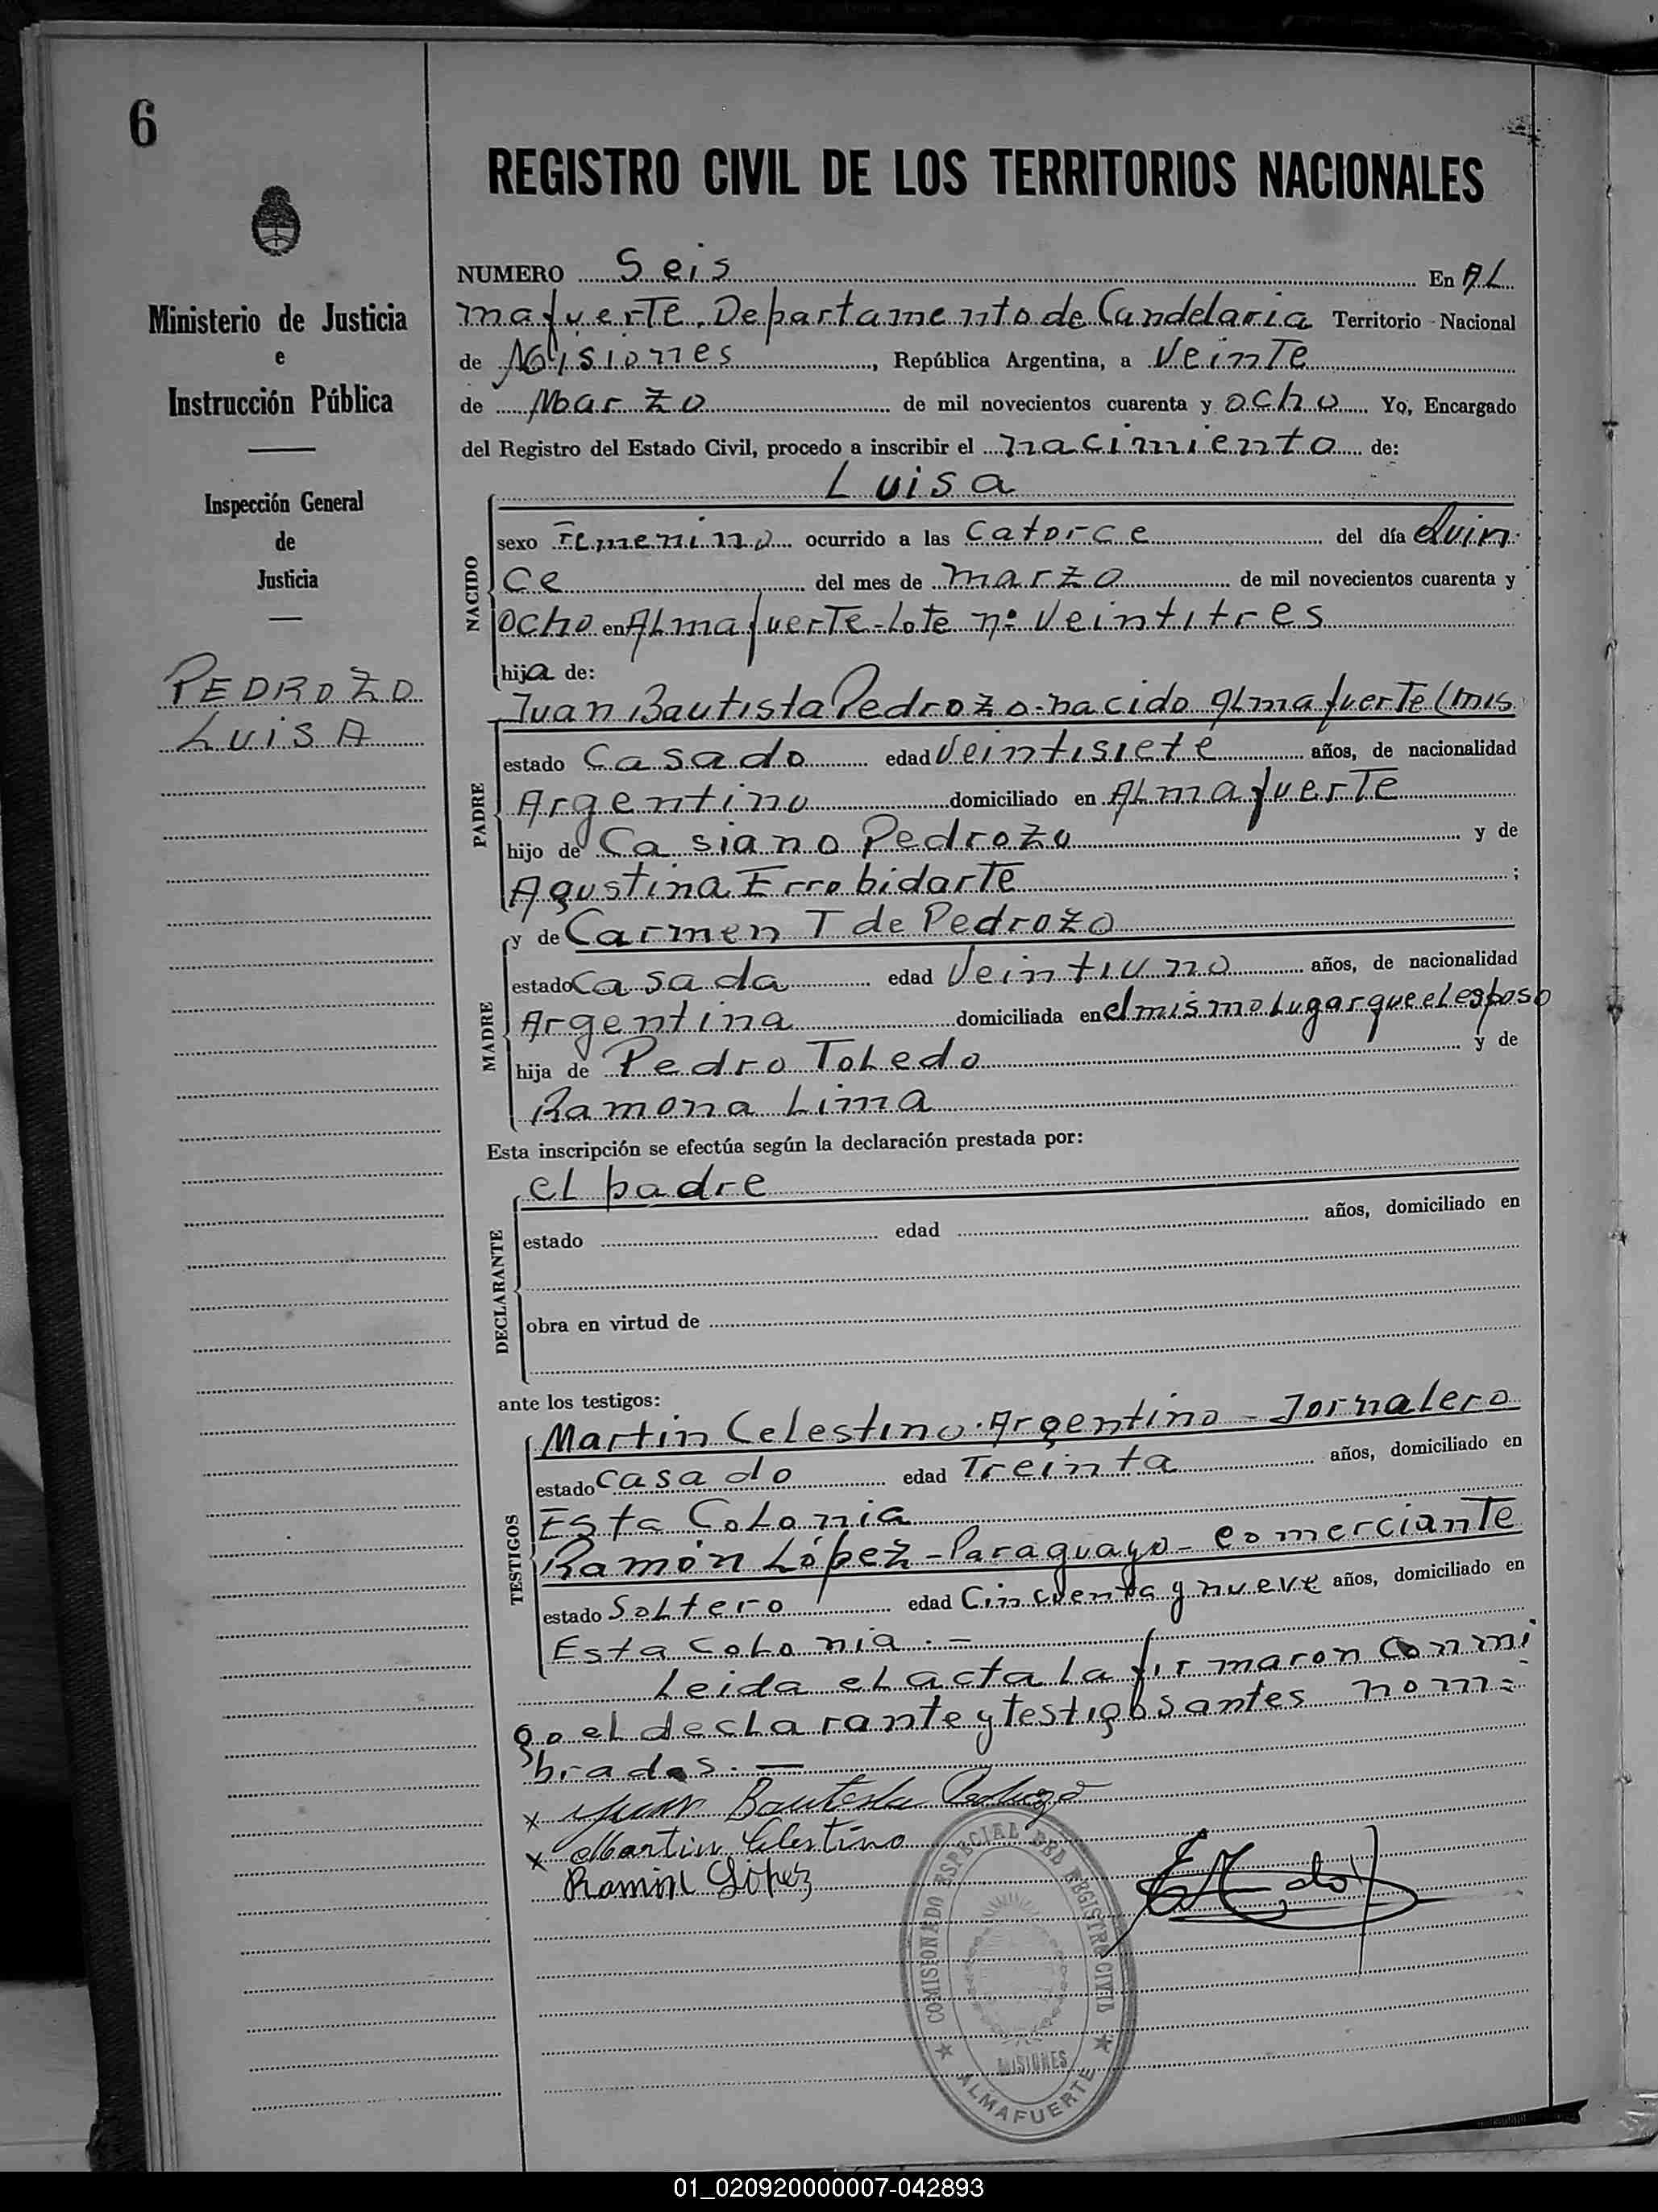 6
REGISTRO CIVIL DE LOS TERRITORIOS NACIONALES
Ministerio de Justicia
e
Instrucción Pública
Inspección General
de
Justicia
PEDROZO
LUISA
NUMERO Seis En AL
mafuerte. Departamento de Candelaria Territorio Nacional
de Misiones, República Argentina, a Veinte
de Marzo de mil novecientos cuarenta y ocho Yo, Encargado
del Registro del Estado Civil, procedo a inscribir el nacimiento de:
Luisa
NACIDO
sexo Femenino ocurrido a las Catorce del día Quin
ce del mes de marzo de mil novecientos cuarenta y
Ocho en ALmafuerTe-Lote nº Veintitres
hija de:
Juan Bautista Pedrozo-nacido ALmafuerTe (mis
PADRE
estado Casado edad Veintisiete años, de nacionalidad
Argentino domiciliado en ALmafuerTe
hijo de Casiano Pedrozo y de
Agustina ErrobidarTe ;
y de Carmen T de Pedrozo
MADRE
estado Casada edad Veintiuno años, de nacionalidad
Argentina domiciliada en el mismo Lugar que el esposo
hija de Pedro Toledo y de
Ramona Lima
Esta inscripción se efectúa según la declaración prestada por:
el padre
DECLARANTE
estado edad años, domiciliado en
obra en virtud de
ante los testigos:
Martin Celestino. Argentino - Jornalero
TESTIGOS
estado casado edad Treinta años, domiciliado en
Esta Colonia
Ramón López - Paraguayo - comercianTe
estado Soltero edad Cincuenta y nueve años, domiciliado en
Esta Colonia. -
Leida el acta la firmaron Conmi
go el declarante y testigos antes nom=
brados. —
x Juan Bautista Pedrozo
x Martin Celestino
Ramón López
COMISIONADO ESPECIAL DEL REGISTRO CIVIL
MISIONES
ALMAFUERTE
01_020920000007-042893